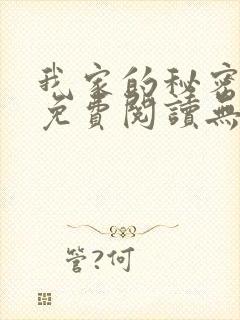 我家的秘密
免費閱讀無
管?何